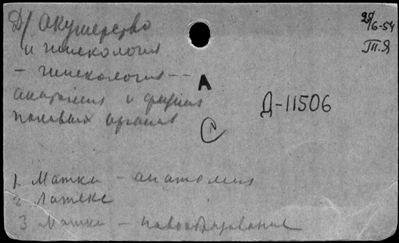 Д/ Акушерство
и гинекология
– гинекология –
анатомия и физиол
половых органов
25/6-54
П.Я
А
Д-11506
С
1. Матка – анатомия
2 Латекс
3 Матка – новообразование